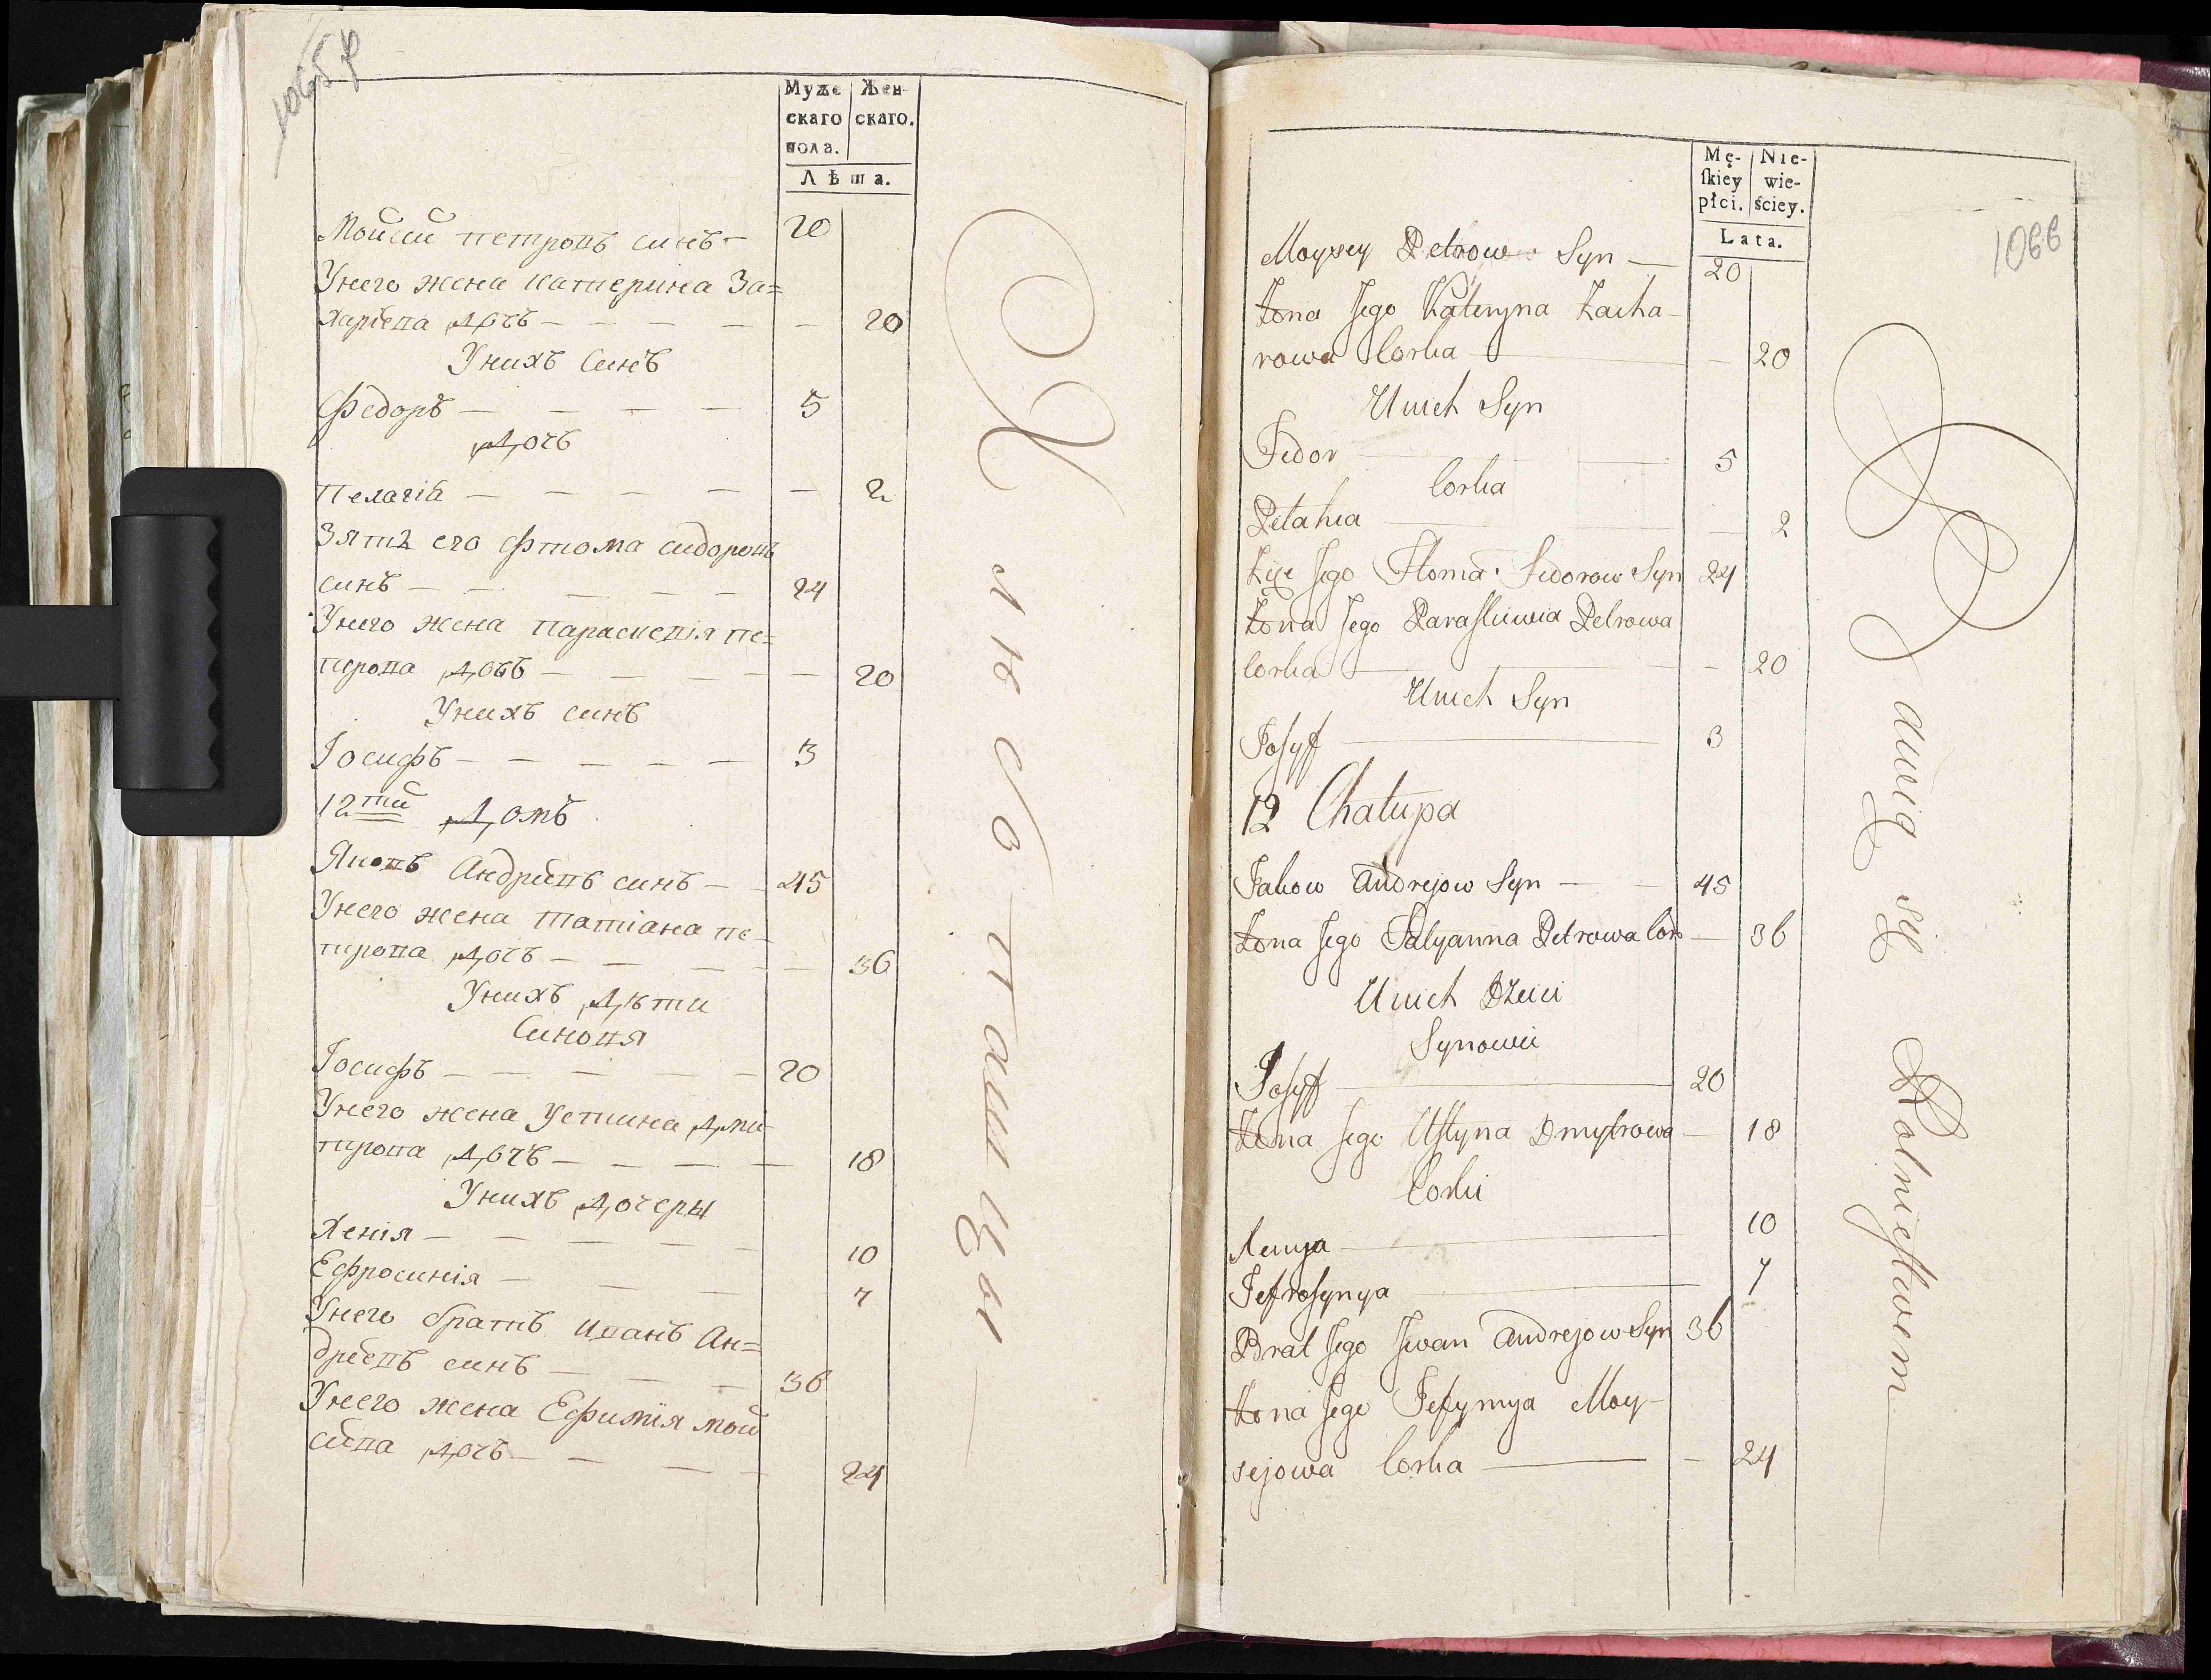 Муже Жен-
скаго скаго.
пола.
Лѣта.
Мойсй петровъ синъ — 20
Унего жена катерина За=
харіева дочъ — 20
Унихъ Синъ
Федоръ — 5
Дочъ
пелагія — 2
Зять его фтома сидоровъ
синъ — 24
Унего жена параскевія пе=
трова дочъ — 20
Унихъ синъ
Іосифъ — 3
12тй Домъ
Яковъ Андрѣевъ синъ — 45
Унего жена татіана пе-
трова дочъ — 36
Унихъ дѣти
Синовя
Іосифъ — 20
Унего жена Устина дми-
трова дочъ — 18
Унихъ дочеры
Хенія — 10
Ефросинія — 7
Унего братъ иванъ Ан=
дреевъ синъ — 36
Унего жена Ефимія мой
сѣева дочъ — 24
Хлѣбопашцы
1066
Mę- Nie-
ſkiey wie-
płci. ściey.
Lata.
Moysey Petrow Syn — 20
Żona Jego Kateryna Zacha-
rowa Corka — 20
Unich Syn
Fedor — 5
Corka
Pelahia — 2
Zięc Jego Ftoma Sidorow Syn 24
Żona Jego Paraſkiewia Petrowa
Corka — 20
Unich Syn
Joſyff — 3
12 Chałupa
Jakow Andrejow Syn — 45
Żona Jego Tatyanna Petrowa Cor — 36
Unich Dzieci
Synowie
Joſyff — 20
Żona Jego Uſtyna Dmytrowa — 18
Corki
Xenya — 10
Jefroſynya — 7
Brat Jego Jwan Andrejow Syn 36
Żona Jego Jefymya Moy-
sejowa Corka — 24
Bawią się Rolnictwem